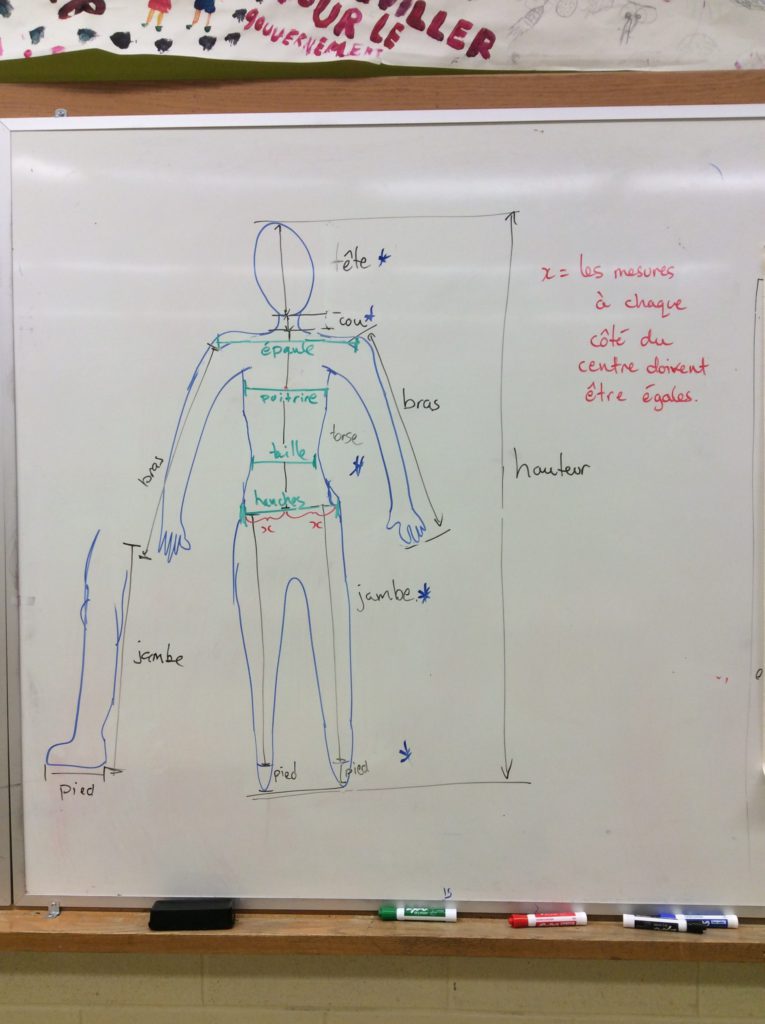 VEILLER
POUR LE
GOUVERNEMENT
tête *
cou *
épaule
poitrire
bras
bras
torse
*
taille
hanches
x x
hauteur
jambe. *
jambe
*
pied
pied
pied
x = les mesures
à chaque
côté du
centre doivent
être égales.